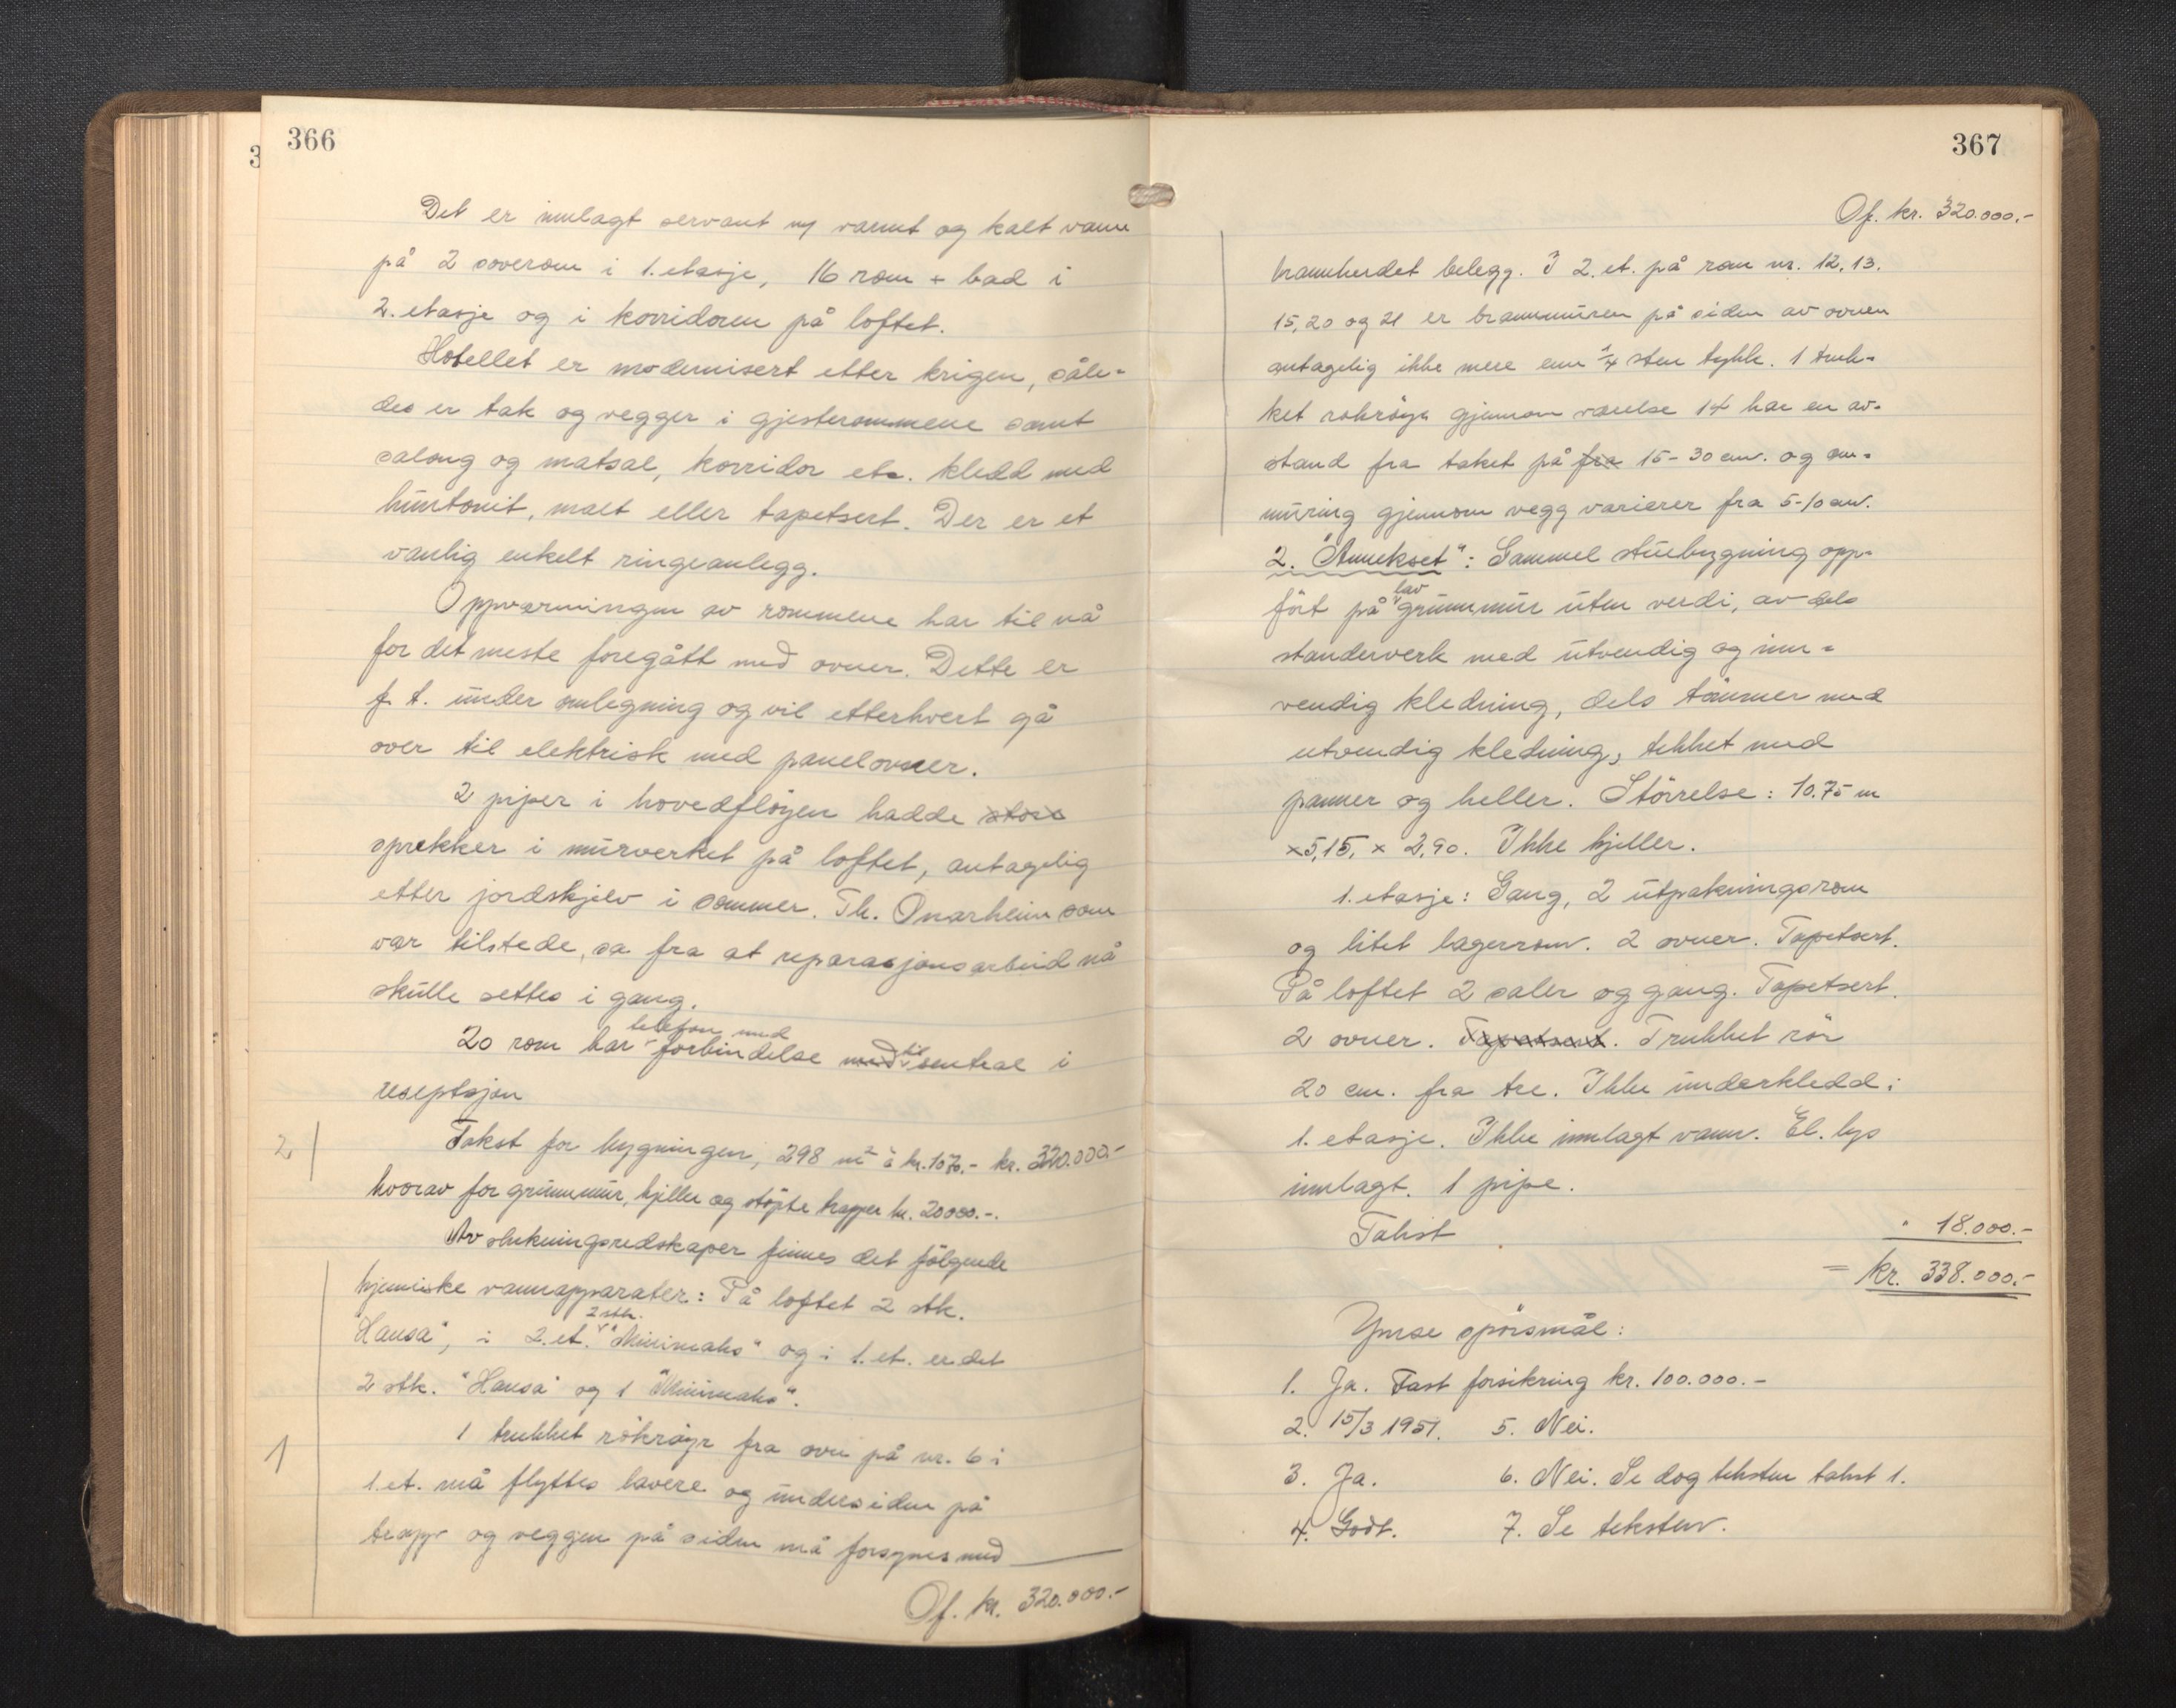 366
Det er innlagt servant m/ varmt og kalt vann
på 2 soverom i 1. etasje, 16 rom + bad i
2. etasje og i korridoren på loftet.
Hotellet er modernisert etter krigen, såle-
des er tak og vegger i gjesterommene samt
salong og matsal, korridor etc. kledd med
huntonit, malt eller tapetsert. Der er et
vanlig enkelt ringeanlegg.
Oppvarmingen av rommene har til nå
for det meste foregått med ovner. Dette er
f. t. under omlegning og vil etterhvert gå
over til elektrisk med panelovner.
2 piper i hovedfløyen hadde store
sprekker i murverket på loftet, antagelig
etter jordskjelv i sommer. Th. Onarheim som
var tilstede, sa fra at reparasjonsarbeid nå
skulle settes i gang.
telefon med
20 rom har forbindelse med til sentral i
reseptsjon
2
Takst for bygningen, 298 m² à kr. 1070.- kr. 320.000.-
hvorav for grunnmur, kjeller og støpte trapper kr. 20000.-.
Av slukningsredskaper finnes det følgende
kjemiske vannapparater: På loftet 2 stk.
2 stk.
Hansa", i 2. et. "Minimaks" og i 1. et. er det
2 stk. "Hansa" og 1 "Minimaks".
1
1 trukket rökröyr fra ovn på nr. 6 i
1. et. må flyttes lavere og undersiden på
trapp og veggen på siden må forsynes med
Of. kr. 320.000.-
367
Of. kr. 320.000.-
brannherdet belegg. I 2. et. på rom nr. 12, 13.
15, 20 og 21 er brannmuren på siden av ovnen
antagelig ikke mere enn 1/4 sten tykk. 1 truk-
ket rökröyr gjennom værelse 14 har en av-
stand fra taket på fra 15-30 cm. og om-
muring gjennom vegg varierer fra 5-10 cm.
2. "Annekset": Gammel stuebygning opp-
lav
fört på grunnmur uten verdi, av dels
standerverk med utvendig og inn-
vendig kledning, dels tömmer med
utvendig kledning, tekket med
panner og heller. Störrelse: 10.75 m
x 5,15, x 2,90. Ikke kjeller.
1. etasje: Gang, 2 utpakningsrom
og litet lagerrom. 2 ovner. Tapetsert.
På loftet 2 saler og gang. Tapetsert.
2 ovner. Tapetsert. Trukket rör
20 cm. fra tre. Ikke underkledd i
1. etasje. Ikke innlagt vann. El. lys
innlagt. 1 pipe.
Takst " 18.000.-
= kr. 338.000.-
Ymse spörsmål:
1. Ja. Fast forsikring kr. 100.000.-
2. 15/3 1951. 5. Nei.
3. Ja. 6. Nei. Se dog teksten takst 1.
4. Godt. 7. Se teksten.